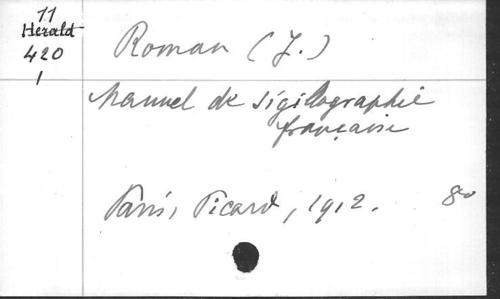 11
Herald
420
1
Roman (J.)
Manuel de sigillographie
française
Paris, Picard, 1912. 8º